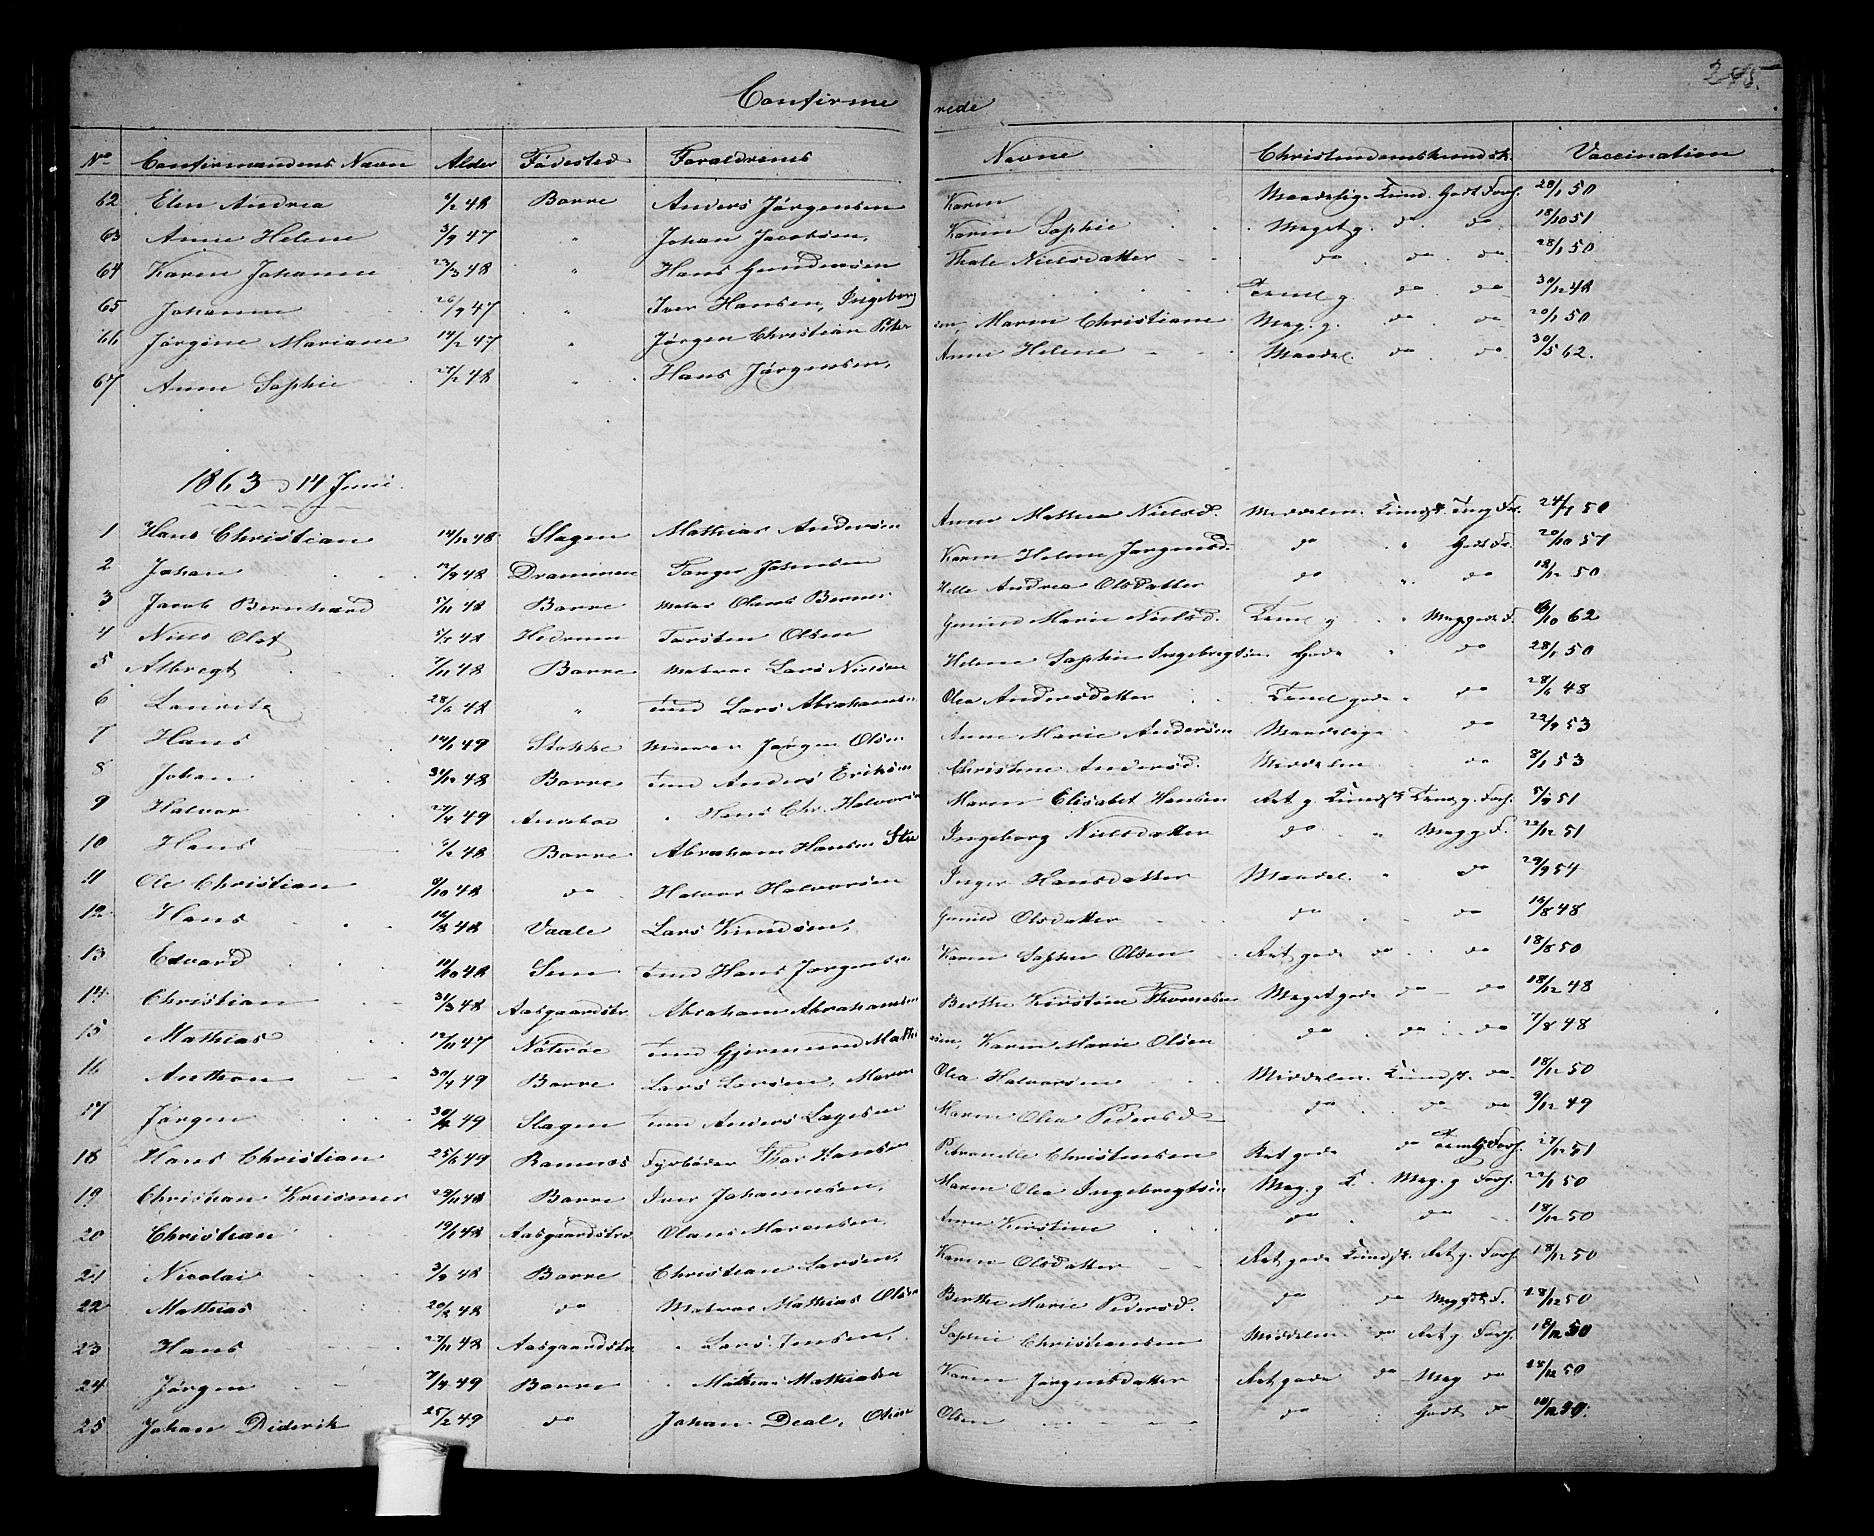 Confirmerede
245.
No Confirmandens Navn Alder Fødested Forældrenes Navne Christendomskundsk. Vaccination
62 Elen Andrea 6/2 48 Borre Anders Jørgensen Karen Maadelig. Kund. Godt Forh. 28/1 50
63 Anne Helene 3/9 47 " Johan Jacobsen, Karen Sophie Meget g. do do 18/10 51
64 Karen Johanne 23/3 48 " Hans Gundersen Thale Nielsdatter do do do 28/1 50
65 Johanne 26/9 47 " Iver Hansen, Ingeborg Teml g do do 30/12 48
66 Jørgine Mariane 14/2 47 " Jørgen Christian Peter sen, Maren Christiane Meg. g. do do 20/1 50
67 Anne Sophie 27/2 48 " Hans Jørgensen, Anne Helene Maadel. do do 30/5 62.
1863 14 Juni.
1 Hans Christian 14/12 48 Slagen Mathias Andersen Anne Mathea Nielsd. Middelm. Kundsk. Fr. 24/7 50
2 Johan 12/9 48 Drammen Johnsen Karen Helene Jørgensd. do " Godt Fr. 20/10 57
3 Jacob Bernhard 5/11 48 Borre Helle Andrea Olsdatter do " do 18/12 50
4 Niels Olaf 48 Torsten Olsen Gunild Marie Nielsd. Teml g " Meg gode F. 6/10 62
5 Albregt 7/11 48 Borre Matros Lars Nielsen Helene Sophie Ingebregtsen Gode " do 28/1 50
6 Lauritz 28/6 48 " Lars Abrahamsen Olea Andersdatter Teml gode " do 28/6 48
7 Hans 14/1 49 Stokke Jørgen Olsen Anne Marie Andersen Maadelige do 22/9 53
8 Johan 31/12 48 Borre Anders Eriksen Christine Andersd. Middelm do 8/1 53
9 Halvor 27/4 49 Andeboe " Hans Chr. Halvorsen Maren Elisabet Hansen Ret g. Kundsk Teml g. Forh. 5/9 51
10 Hans 6/2 48 Borre Abraham Hansen Ingeborg Nielsdatter do " Meg g F. 22/12 51
11 Ole Christian 8/10 48 do Halvor Halvorsen Inger Hansdatter Maadel. " do 29/9 54
12 Hans 12/8 48 Vaale Lars Knudsen, Gunild Olsdatter do do 15/8 48
13 Edvard 10/10 48 Sem Hans Jørgensen Karen Sophie Olsen Ret gode do do 18/8 50
14 Christian 31/3 48 Aasgaardstr. Abraham Abrahamsen Berthe Kirstine Thomesen Meget gode do do 18/12 48
15 Mathias 12/11 47 Nøterøe Gjermund Mathi sen, Karen Marie Olsen do do do 7/8 48
16 Anthon 30/4 49 Borre Lars Larsen, Maren Olea Halvorsen Middelm. Kundsk. do 18/12 50
17 Jørgen 30/4 49 Slagen Anders Lagesen Maren Olea Pedersd do do do 9/12 49
18 Hans Christian 25/6 49 Ramnes Fyrbøder Hansen Petronelle Christensen Ret gode do Teml g Forh. 27/12 51
19 Christian 29/11 48 Borre Iver Johannesen, Maren Olea Ingebregtsen Meg. g K. Meg. g Forh. 22/1 50
20 Christian 19/1 48 Aasgaardstrd Olaus Marensen, Anne Kirstine do do 18/12 50
21 Nicolai 3/9 48 Borre Christian Larsen, Karen Olsdatter Ret gode Kundsk. Ret g. Forh. 18/12 50
22 Mathias 20/2 48 do Matros Mathias Olsen Berthe Marie Pedersd. do do Meg gode F. 18/12 50
23 Hans 27/11 48 Aasgaardstr " Lars Jensen, Sophie Christiansen Middelm do Ret g Forh. 18/12 50
24 Jørgen 7/4 49 Borre " Mathias Mathiasen Karen Jørgensdatter Ret gode do Meg do 18/12 50
25 Johan Diderik 25/2 49 do Johan Olsen do Godt do 18/12 50.